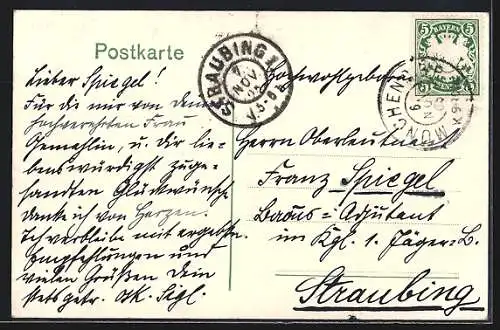 Postkarte
Lieber Spiegel!
Für die mir von dem
hochverehrten Frau
Gemahlin, u. dir lie-
benswürdigst zuge-
sandten Glückwünsche
danke ich von Herzen.
Ich verbleibe mit ergebsten
Empfehlungen und
vielen Grüßen Dein
stets getr.
STRAUBING 1
7
NOV
V. 5-6
5 BAYERN 5
MÜNCHEN
6
NOV
Hochwohlgeboren
Herrn Oberleutnant
Franz Spiegel
Baons-Adjutant
im Kgl. 1. Jäger-B.
Straubing